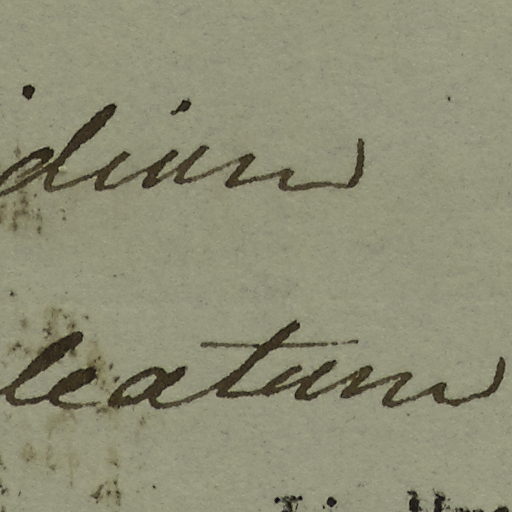 idium
leatum